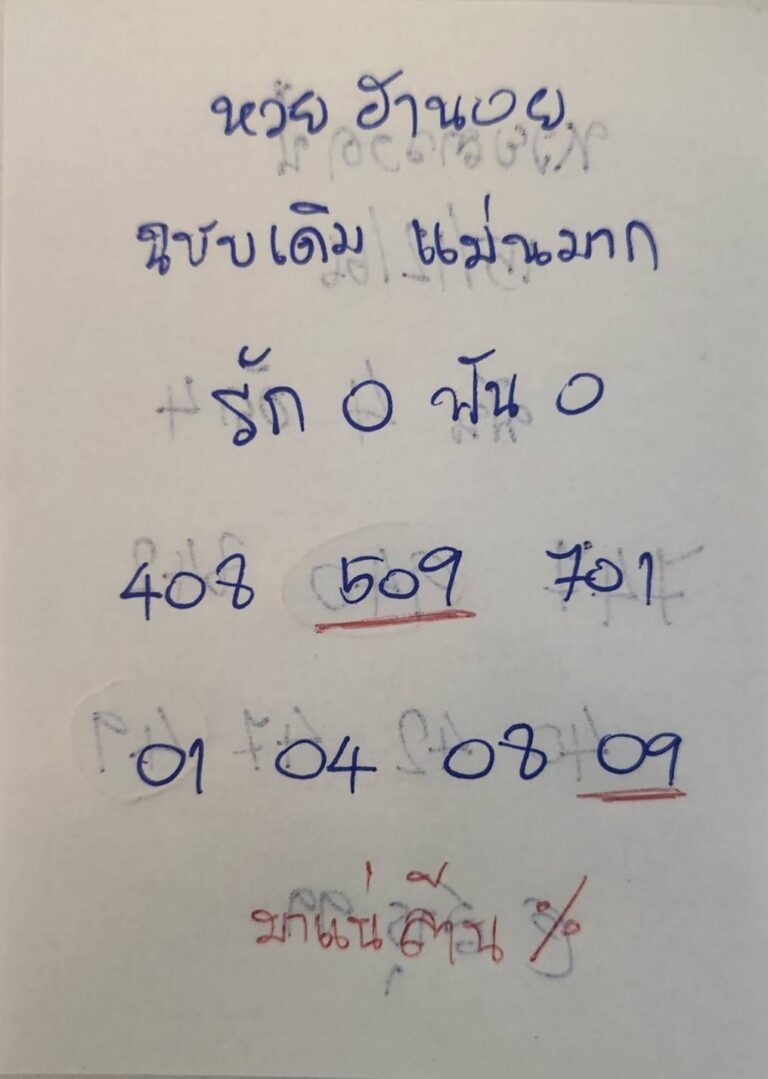 หวย ฮานอย
ฉบับเดิม แม่นมาก
รัก 0 ฟัน 0
408 509 701
01 04 08 09
มาแน่ล้าน %